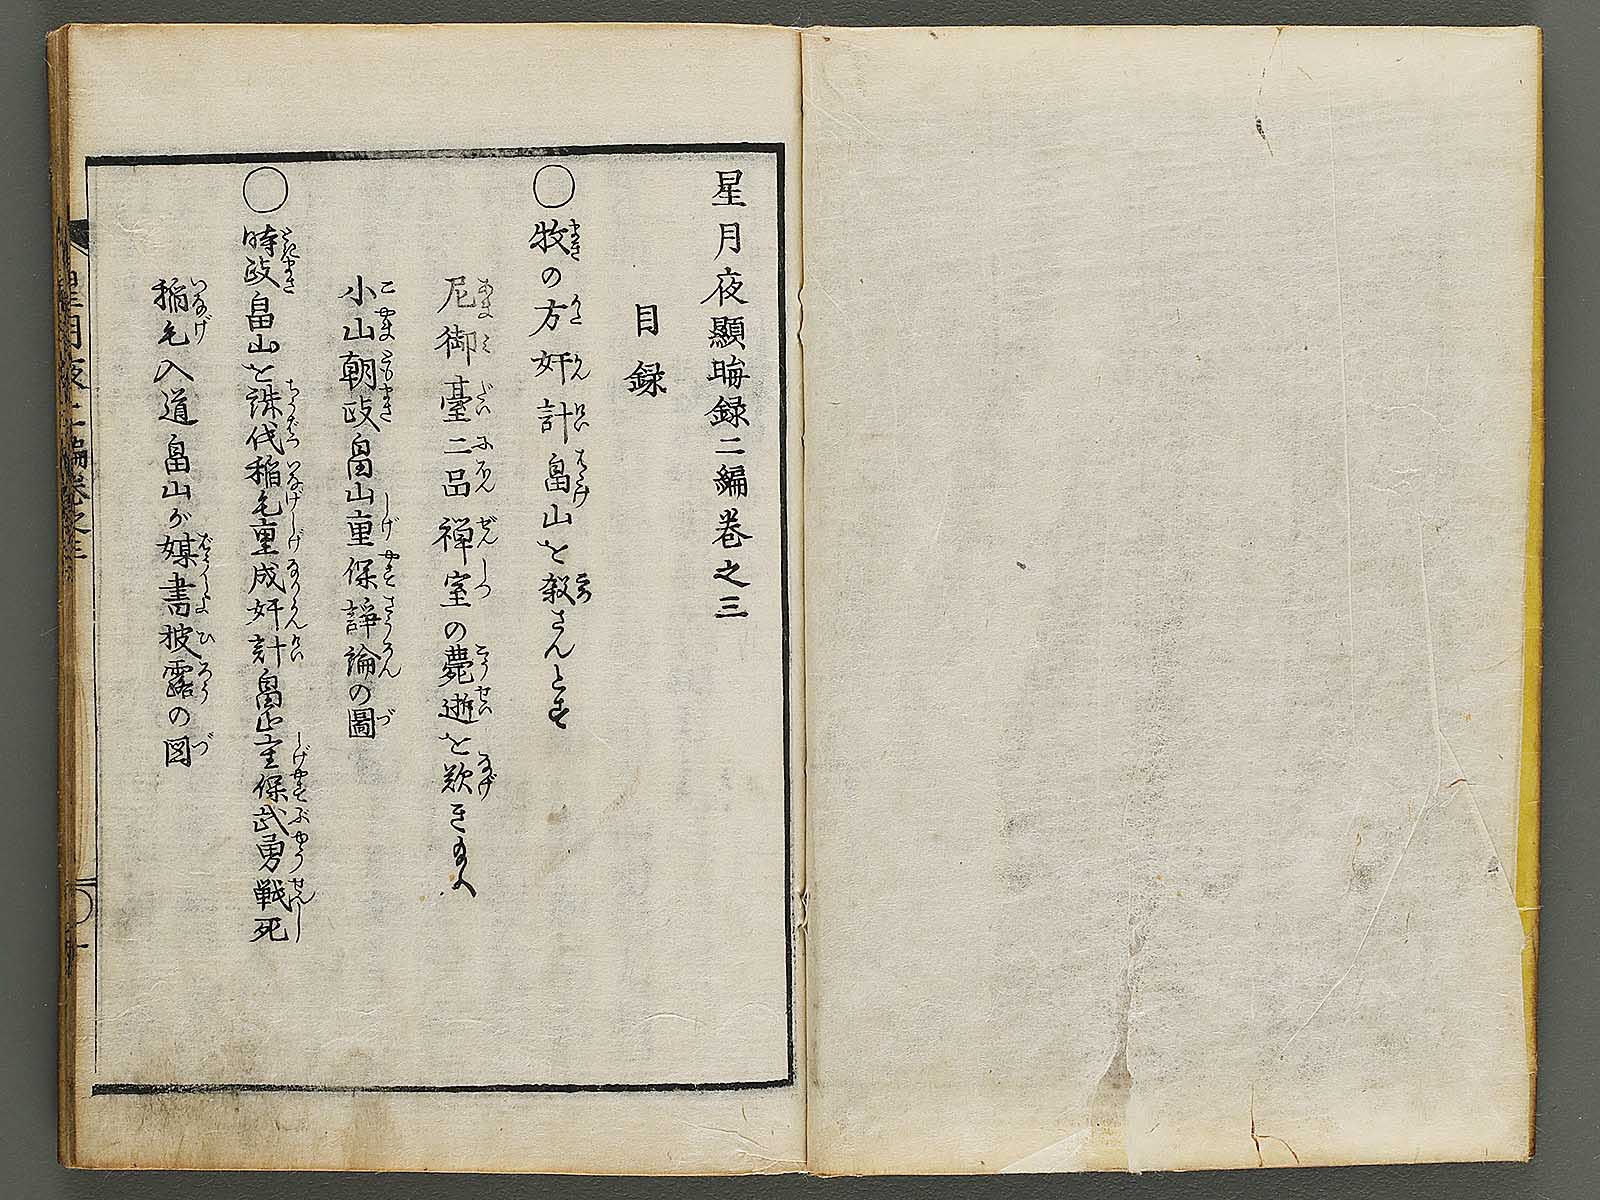 星月夜顯晦録二編巻之三
目録
○牧の方奸計畠山を殺さんとす
尼御臺二品禅室の薨逝を歎き給ふ
小山朝政畠山重保諍論の圖
○時政畠山を誅伐稲毛重成奸計畠山重保武勇戦死
稲毛入道畠山が媒書披露の図
星月夜二編巻之三